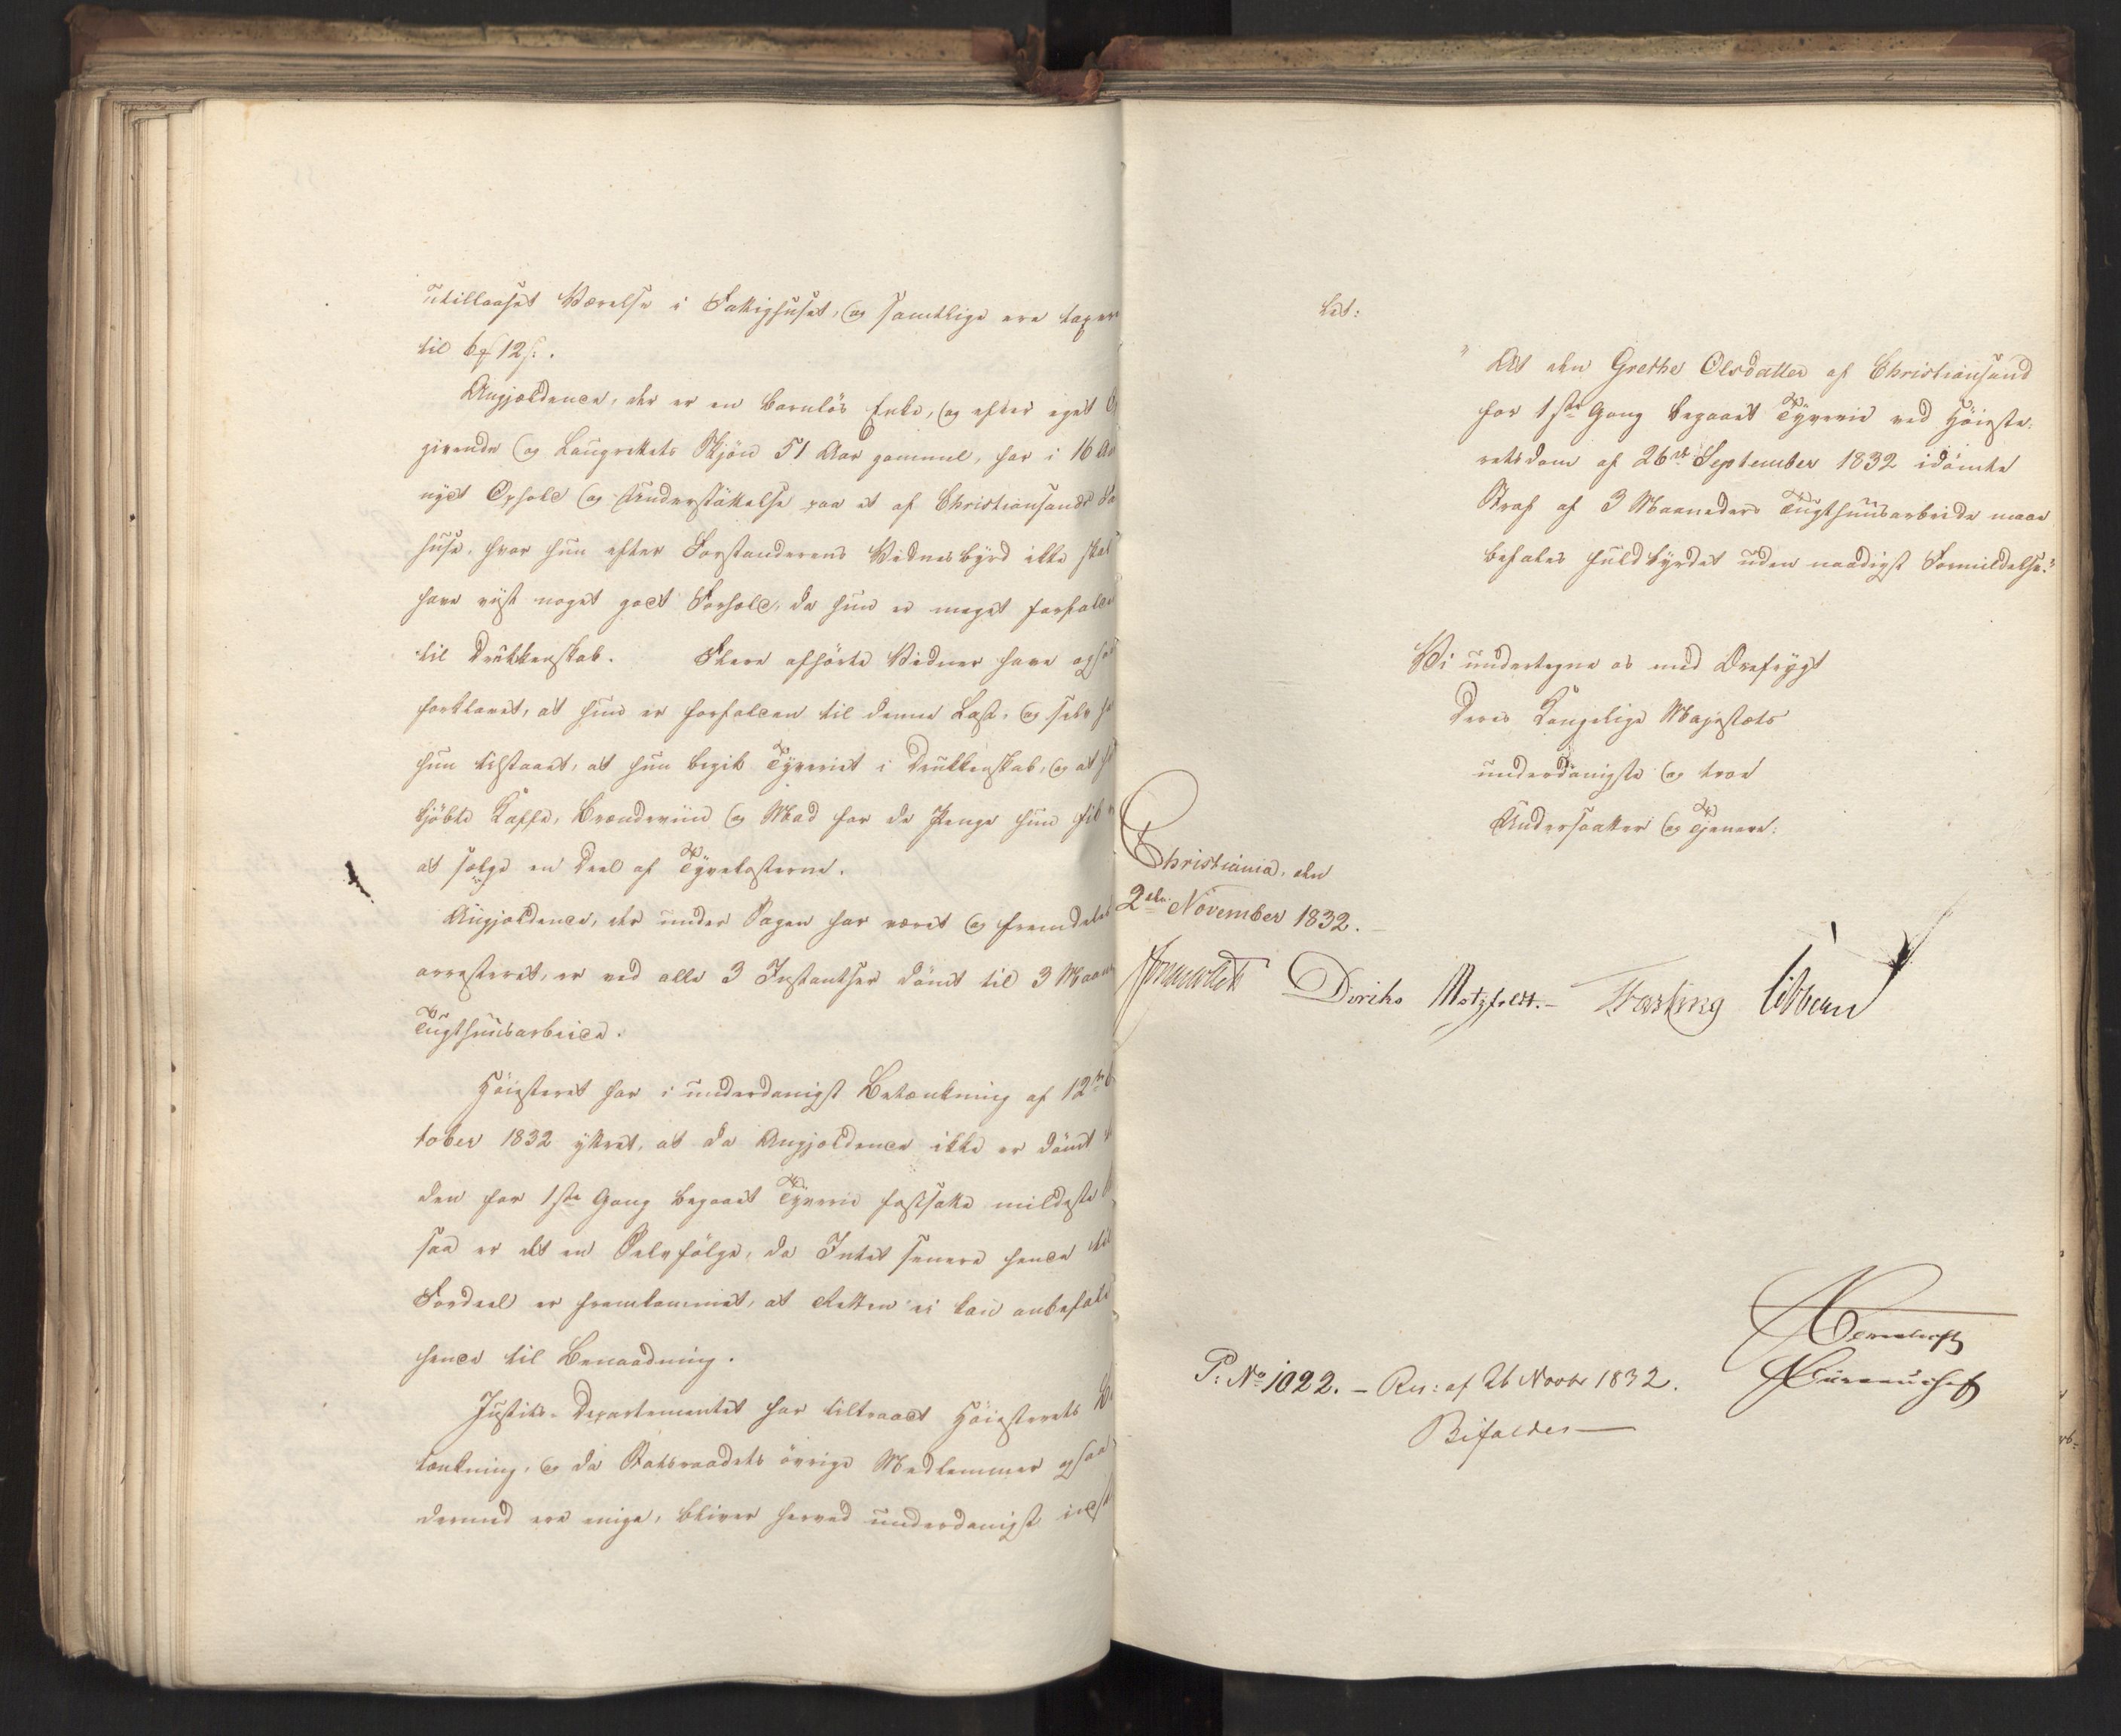 utillaaset Værelse i Fattighuset, og samtlige ere taxere
til 6 12 s.
Angjældende, der er en barnlös Enke, og efter eget
givende og Laugrettets Skjön 51 Aar gammel, har i 16 Aa
nydt Ophold og Understöttelse paa et af Christiansands Fa
huse, hvor hun efter Forstanderens Vidnesbyrd ikke skal
have viist noget godt Forhold, da hun er meget forfalde
til Drukkenskab. Flere afhörte Vidner have ogsaa
forklaret, at hun er forfalden til denne Last, og selv ha
hun tilstaaet, at hun begik Tyveriet i Drukkenskab, og at h
kjöbte Kaffe, Brændeviin og Mad for de Penge hun fik
at sælge en Deel af Tyvekosterne.
Angjældende, der under Sagen har været og fremdeles
arresteret, er ved alle 3 Instantser dömt til 3 Maane
Tugthuusarbeide.
Höiesteret har i underdanigst Betænkning af 12te
tober 1832 yttret, at da Angjældende ikke er dömt
den for 1ste Gang begaaet Tyverie fastsatte mildeste
saa er det en Selvfölge, da Intet senere hende til
Fordeel er fremkommet, at Retten ei kan anbefale
hende til Benaadning.
Justits-Departementet har tiltraadt Höiesterets Be
tænkning, og da Statsraadets övrige Medlemmer ogsaa
dermed ere enige, bliver herved underdanigst indst
let:
"At den Grethe Olsdatter af Christiansand
for 1ste Gang begaaet Tyverie ved Höieste-
retsdom af 26de September 1832 idömte
Straf af 3 Maaneders Tugthuusarbeide maae
befales fuldbyrdet uden naadigst Formildelse."
Vi undertegne os med Ærefrygt
Deres Kongelige Majestæts
underdanigste og troe
Undersaatter og Tjenere:
Christiania, den
2den November 1832.
Diriks Motzfeldt. Fasting Vibe
P: No 1022. - Res: af 26 Novbr 1832.
Bifaldes